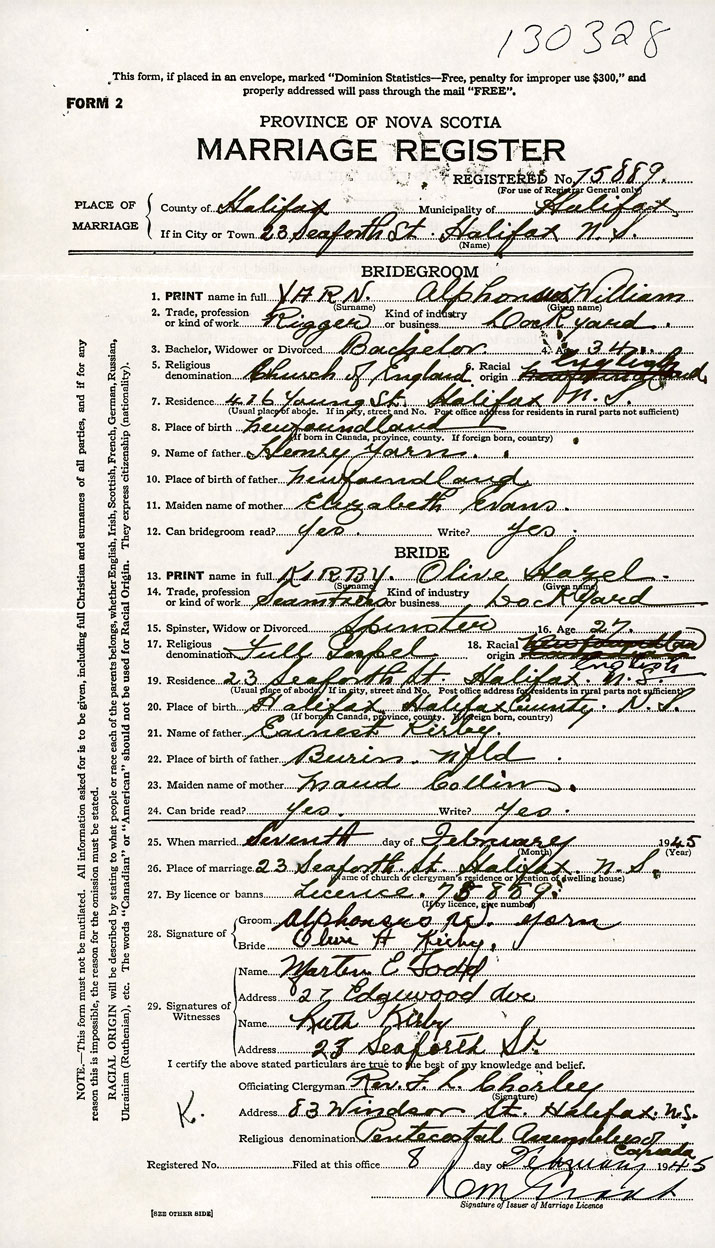 130328
This form, if placed in an envelope, marked “Dominion Statistics—Free, penalty for improper use $300,” and
properly addressed will pass through the mail “FREE”.
FORM 2
PROVINCE OF NOVA SCOTIA
MARRIAGE REGISTER
REGISTERED No. 75889.
(For use of Registrar General only)
PLACE OF MARRIAGE
County of Halifax Municipality of Halifax
If in City or Town 23 Seaforth St. Halifax N.S.
(Name)
BRIDEGROOM
1. PRINT name in full YARN. Alphonsus William
(Surname) (Given name)
2. Trade, profession or kind of work Rigger Kind of industry or business Dockyard.
3. Bachelor, Widower or Divorced Bachelor. 4. Age 34.
5. Religious denomination Church of England 6. Racial origin English
7. Residence 416 Young St. Halifax N.S.
(Usual place of abode. If in city, street and No. Post office address for residents in rural parts not sufficient)
8. Place of birth Newfoundland
(If born in Canada, province, county. If foreign born, country)
9. Name of father Henry Yarn.
10. Place of birth of father Newfoundland
11. Maiden name of mother Elizabeth Evans.
12. Can bridegroom read? Yes. Write? Yes.
BRIDE
13. PRINT name in full KIRBY. Olive Hazel.
(Surname) (Given name)
14. Trade, profession or kind of work Seamstress Kind of industry or business Dockyard
15. Spinster, Widow or Divorced Spinster 16. Age 27.
17. Religious denomination Full Gospel 18. Racial origin Newfoundland English
19. Residence 23 Seaforth St. Halifax. N.S.
(Usual place of abode. If in city, street and No. Post office address for residents in rural parts not sufficient)
20. Place of birth Halifax Halifax County. N.S.
(If born in Canada, province, county. If foreign born, country)
21. Name of father Earnest Kirby.
22. Place of birth of father Burin. Nfld
23. Maiden name of mother Maud Collins.
24. Can bride read? Yes. Write? Yes.
25. When married Seventh day of February 1945
(Month) (Year)
26. Place of marriage 23 Seaforth St. Halifax. N.S.
(Name of church or clergyman's residence or location of dwelling house)
27. By licence or banns Licence. 75889.
(If by licence, give number)
28. Signature of
Groom Alphonsus W. Yarn
Bride Olive H Kirby.
29. Signatures of Witnesses
Name Martin E Todd
Address 27 Edgewood Ave
Name Ruth Kirby
Address 23 Seaforth St.
I certify the above stated particulars are true to the best of my knowledge and belief.
Officiating Clergyman Rev. F. L. Chorley
(Signature)
K.
Address 83 Windsor St. Halifax. N.S.
Religious denomination Pentecostal Assemblies of Canada
Registered No. Filed at this office 8 day of February 1945
Signature of Issuer of Marriage Licence
[SEE OTHER SIDE]
NOTE.—This form must not be mutilated. All information asked for is to be given, including full Christian and surnames of all parties, and if for any
reason this is impossible, the reason for the omission must be stated.
RACIAL ORIGIN will be described by stating to what people or race each of the parents belongs, whether English, Irish, Scottish, French, German, Russian,
Ukrainian (Ruthenian), etc. The words “Canadian” or “American” should not be used for Racial Origin. They express citizenship (nationality).